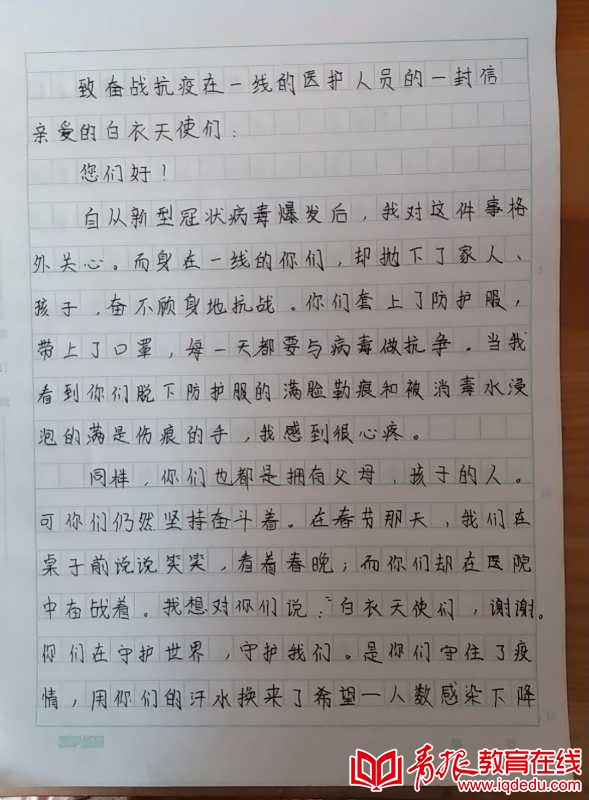 致奋战抗疫在一线的医护人员的一封信
亲爱的白衣天使们：
您们好！
自从新型冠状病毒爆发后，我对这件事格
外关心。而身在一线的你们，却抛下了家人、
孩子，奋不顾身地抗战。你们套上了防护服，
带上了口罩，每一天都要与病毒做抗争。当我
看到你们脱下防护服的满脸勒痕和被消毒水浸
泡的满是伤痕的手，我感到很心疼。
同样，你们也都是拥有父母，孩子的人。
可你们仍然坚持奋斗着。在春节那天，我们在
桌子前说说笑笑，看着春晚；而你们却在医院
中奋战着。我想对你们说：“白衣天使们，谢谢。
你们在守护世界，守护我们。是你们守住了疫
情，用你们的汗水换来了希望一人数感染下降
青报教育在线
www.iqdedu.com